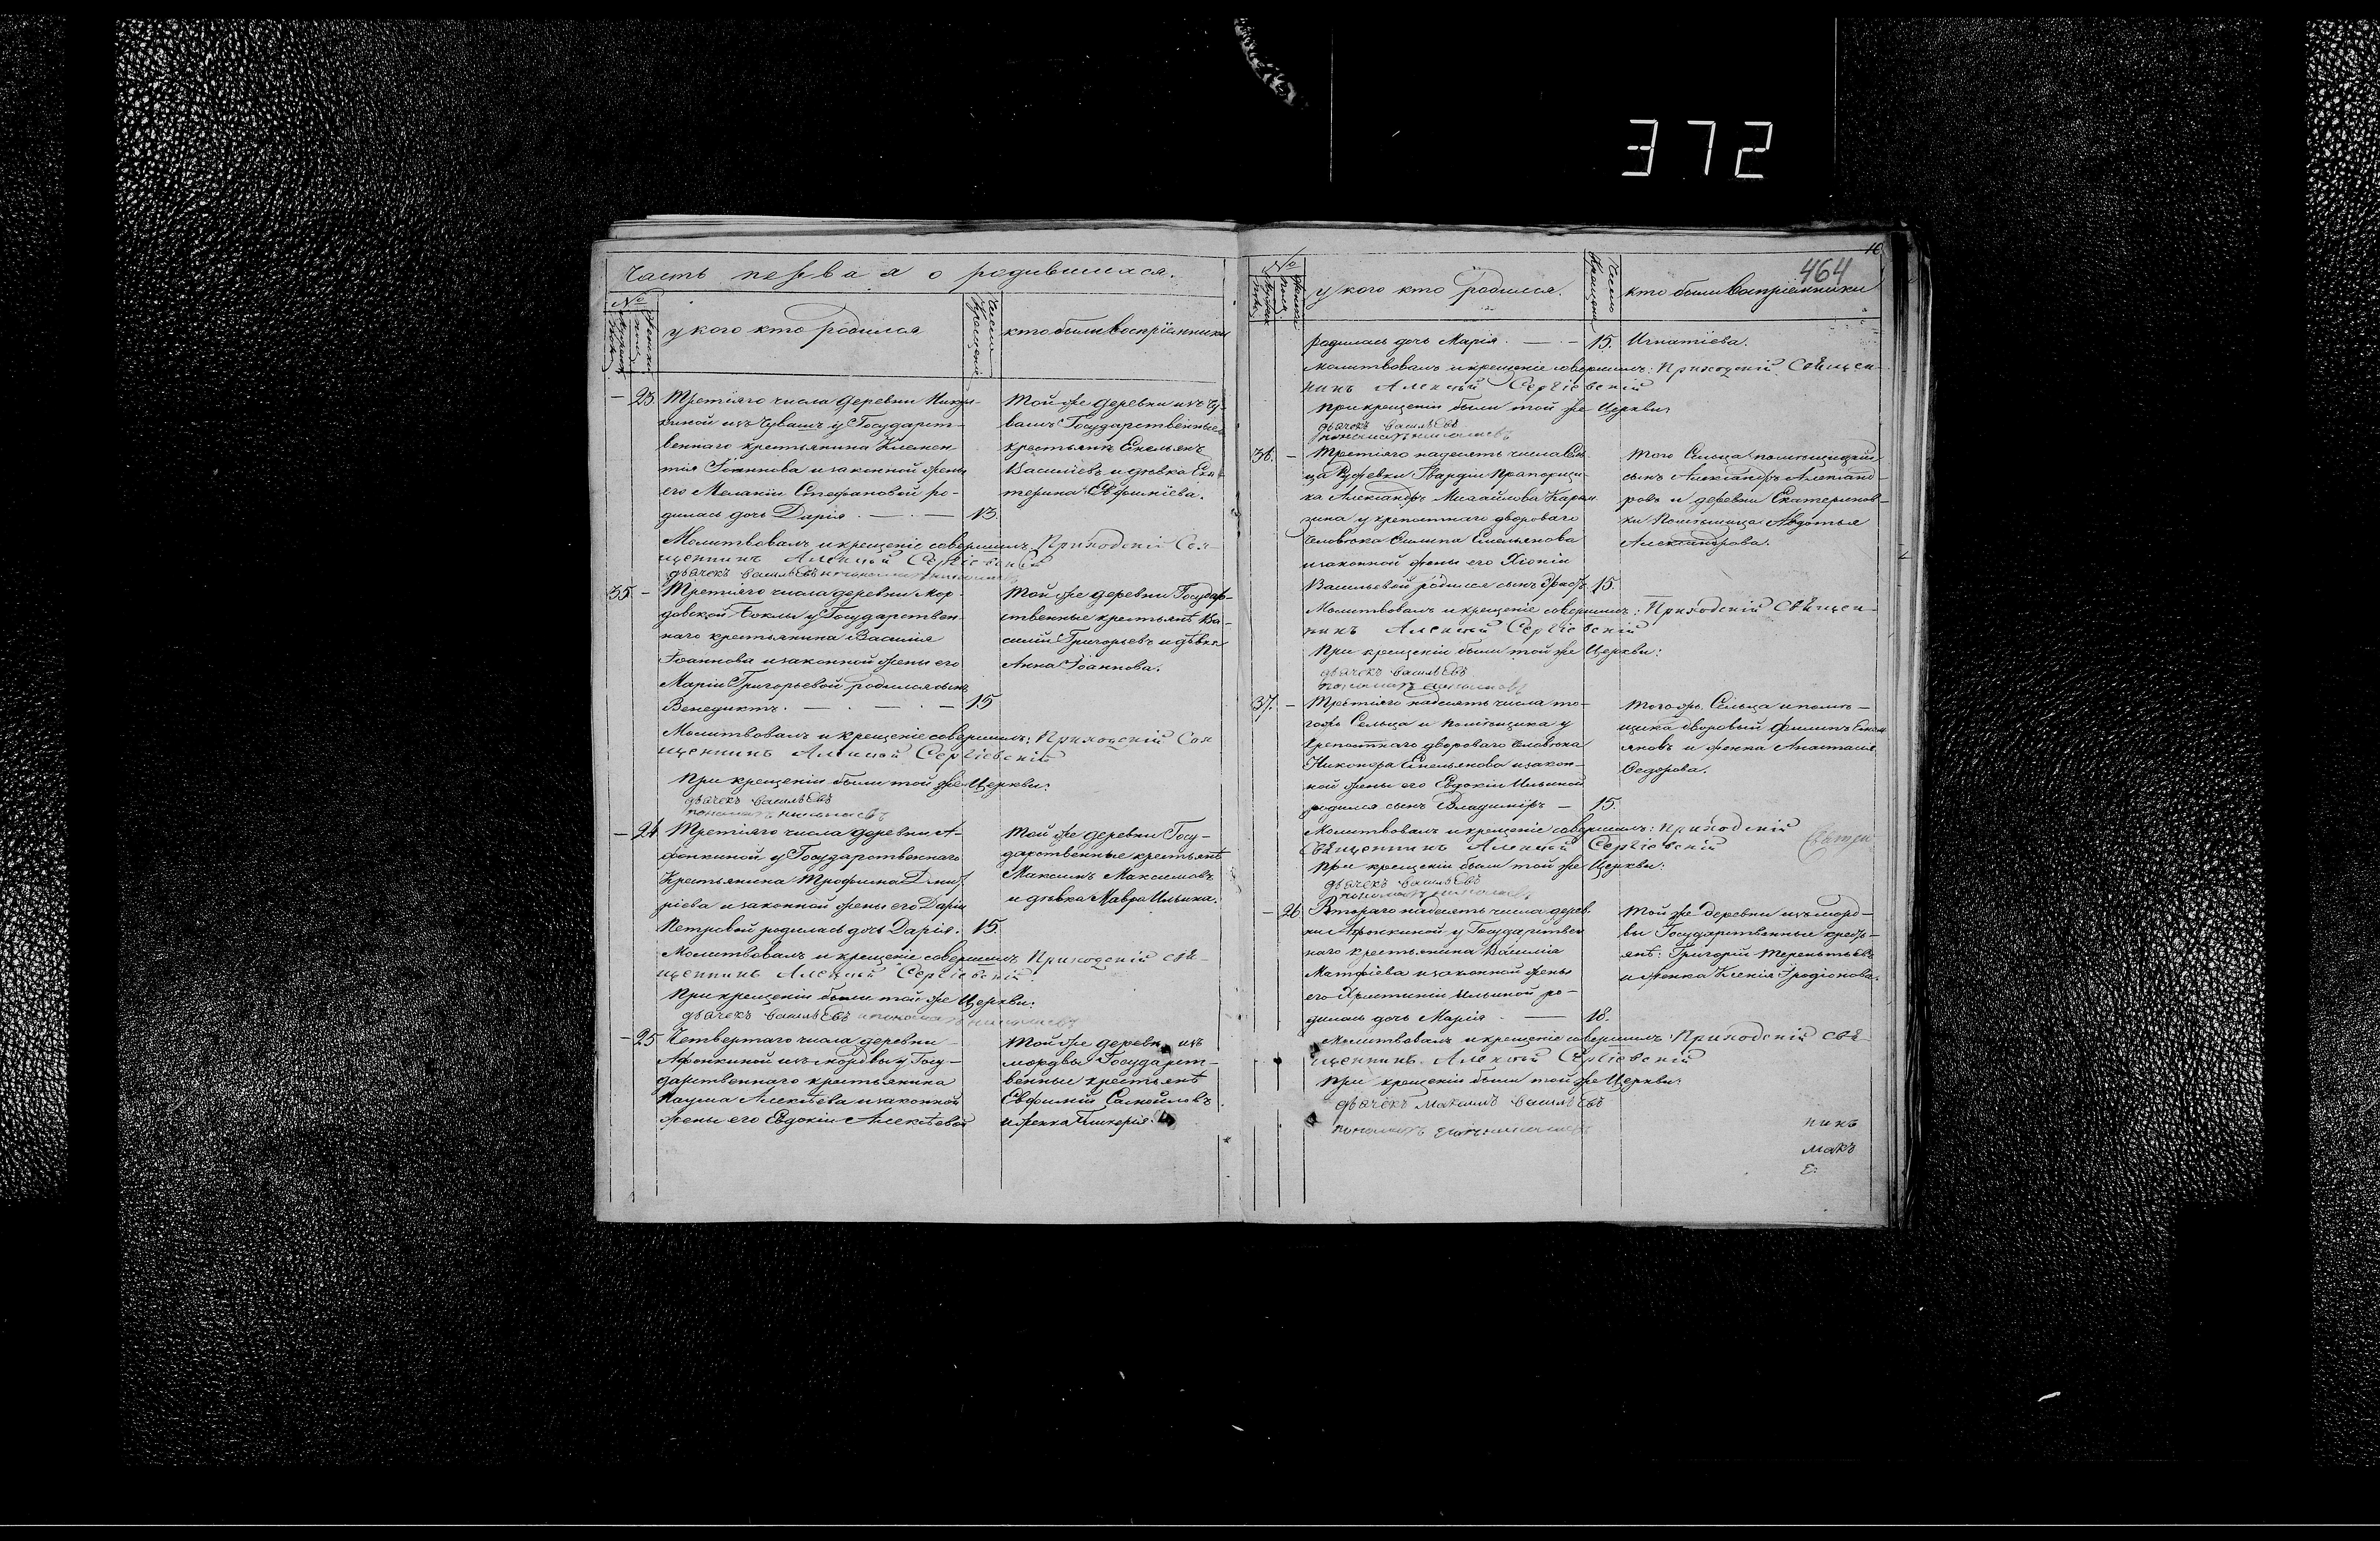 372
Часть первая о родившихся.
№
у кого кто родился
Число Крещенія
кто были воспріемники
23. Третіяго числа деревни
киной изъ Чувашъ у Государст-
веннаго крестьянина Климен-
тія Іоаннова и законной жены
его Меланіи Стефановой ро-
дилась дочь Дарія. — 13.
Той же деревни изъ Чу-
вашъ Государственные
крестьянъ Емельянъ
Василіевъ и дѣвка Ека-
терина Евфиміева.
Молитвовалъ и крещеніе совершилъ Приходскій Свя-
щенникъ Алексій Сергіевскій
дьячекъ василъевъ и пономарь
35. Третіяго числа деревни Мор-
довской Боклы у Государствен-
наго крестьянина Василія
Іоаннова и законной жены его
Маріи Григорьевой родился сынъ
Венедиктъ. — 15
Той же деревни Государ-
ственные крестьянъ Ва-
силій Григорьевъ и дѣвка
Анна Іоаннова.
Молитвовалъ и крещеніе совершилъ: Приходскій Свя
щенникъ Алексій Сергіевскій
При крещеніи были той же Церкви:
дьячекъ василъевъ
пономарь николаевъ
24. Третіяго числа деревни А-
фонкиной у Государственнаго
Крестьянина Трофима Дмит-
ріева и законной жены его Даріи
Петровой родилась дочь Дарія. 15.
Той же деревни Госу-
дарственные крестьянъ
Максимъ Максимовъ
и дѣвка Мавра Ильина.
Молитвовалъ и крещеніе совершилъ Приходскій свѣ-
щенникъ Алексій Сергіевскій
При крещеніи были той же Церкви:
дьячекъ василъевъ и пономарь николаевъ
25 Четвертаго числа деревни
Афонкиной изъ мордвы у Госу-
дарственнаго крестьянина
Наума Алексѣева и законной
жены его Евдокіи Алексѣевой
Той же деревни изъ
мордвы Государст-
венные крестьянъ
Евфимій Самойловъ
и женка Гликерія
16
464
№
у кого кто родился.
Число Крещенія
кто были Воспріемники
родилась дочь Марія. — 15. Игнатіева.
Молитвовалъ и крещеніе совершилъ: Приходскій Свѣщен-
никъ Алексій Сергіевскій
При крещеніи были той же Церкви:
дьячекъ василъевъ
пономарь николаевъ
36. Третіяго надесять числа Сель-
ца Гвардіи Прапорщи-
ка Александра Михайлова Карам-
зина у крепостнаго двороваго
человѣка Филипа Емельянова
и законной жены его Хіоніи
Васильевой родился сынъ 15.
Того Сельца помѣщицкій
сынъ Александръ Александ-
ровъ и деревни Екатеринов-
ки Помѣщица Авдотья
Александрова.
Молитвовалъ и крещеніе совершилъ: Приходскій Свѣщен-
никъ Алексій Сергіевскій
При крещеніи были той же Церкви:
дьячекъ василъевъ
пономарь николаевъ
37. Третіяго надесять числа то-
гожъ Сельца и помѣщика у
Крепостнаго двороваго человѣка
Никонора Емельянова и закон-
ной жены его Евдокіи Ильиной
родился сынъ Владиміръ — 15.
Того жъ Сельца и помѣ-
щика дворовый Филипъ Емел
яновъ и женка Анастасія
Ѳедорова.
Молитвовалъ и крещеніе совершилъ: Приходскій
Свѣщенникъ Алексій Сергіевскій
При крещеніи были той же Церкви:
дьячекъ василъевъ
пономарь николаевъ
26. Втораго надесять числа дерев-
ни Афонкиной у Государствен
наго крестьянина Василія
Матфіева и законной жены
его Христиніи Ильиной ро-
дилась дочь Марія. — 18.
Той же деревни изъ морд-
вы Государственные кресть-
янъ: Григорій Терентьевъ
и женка Ксенія Іродіонова.
Молитвовалъ и крещеніе совершилъ: Приходскій свѣ-
щенникъ Алексій Сергіевскій
При крещеніи были той же Церкви:
дьячекъ Максимъ василъевъ
пономарь николаевъ
никъ
макъ
Е: